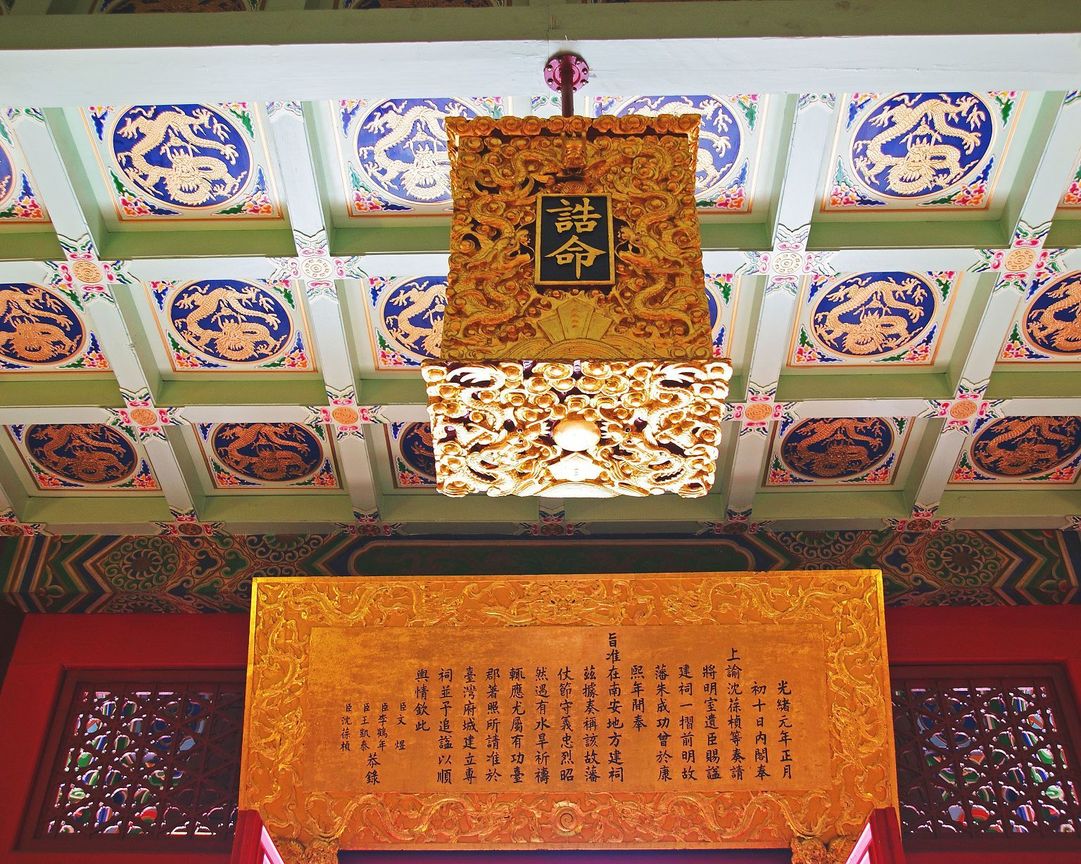 誥命
光緒元年正月
初十日內閣奏
上諭沈葆楨等奏請
將明室遺臣賜諡
建祠一摺前明故
藩朱成功曾於康
熙年間奉
旨准在南安地方建祠
茲據奏稱該故藩
仗節守義忠烈昭
然遇有水旱祈禱
輒應尤屬有功臺
郡著照所請准於
臺灣府城建立專
祠並予追諡以順
輿情欽此
臣文煜
臣李鶴年
臣王凱泰恭錄
臣沈葆楨